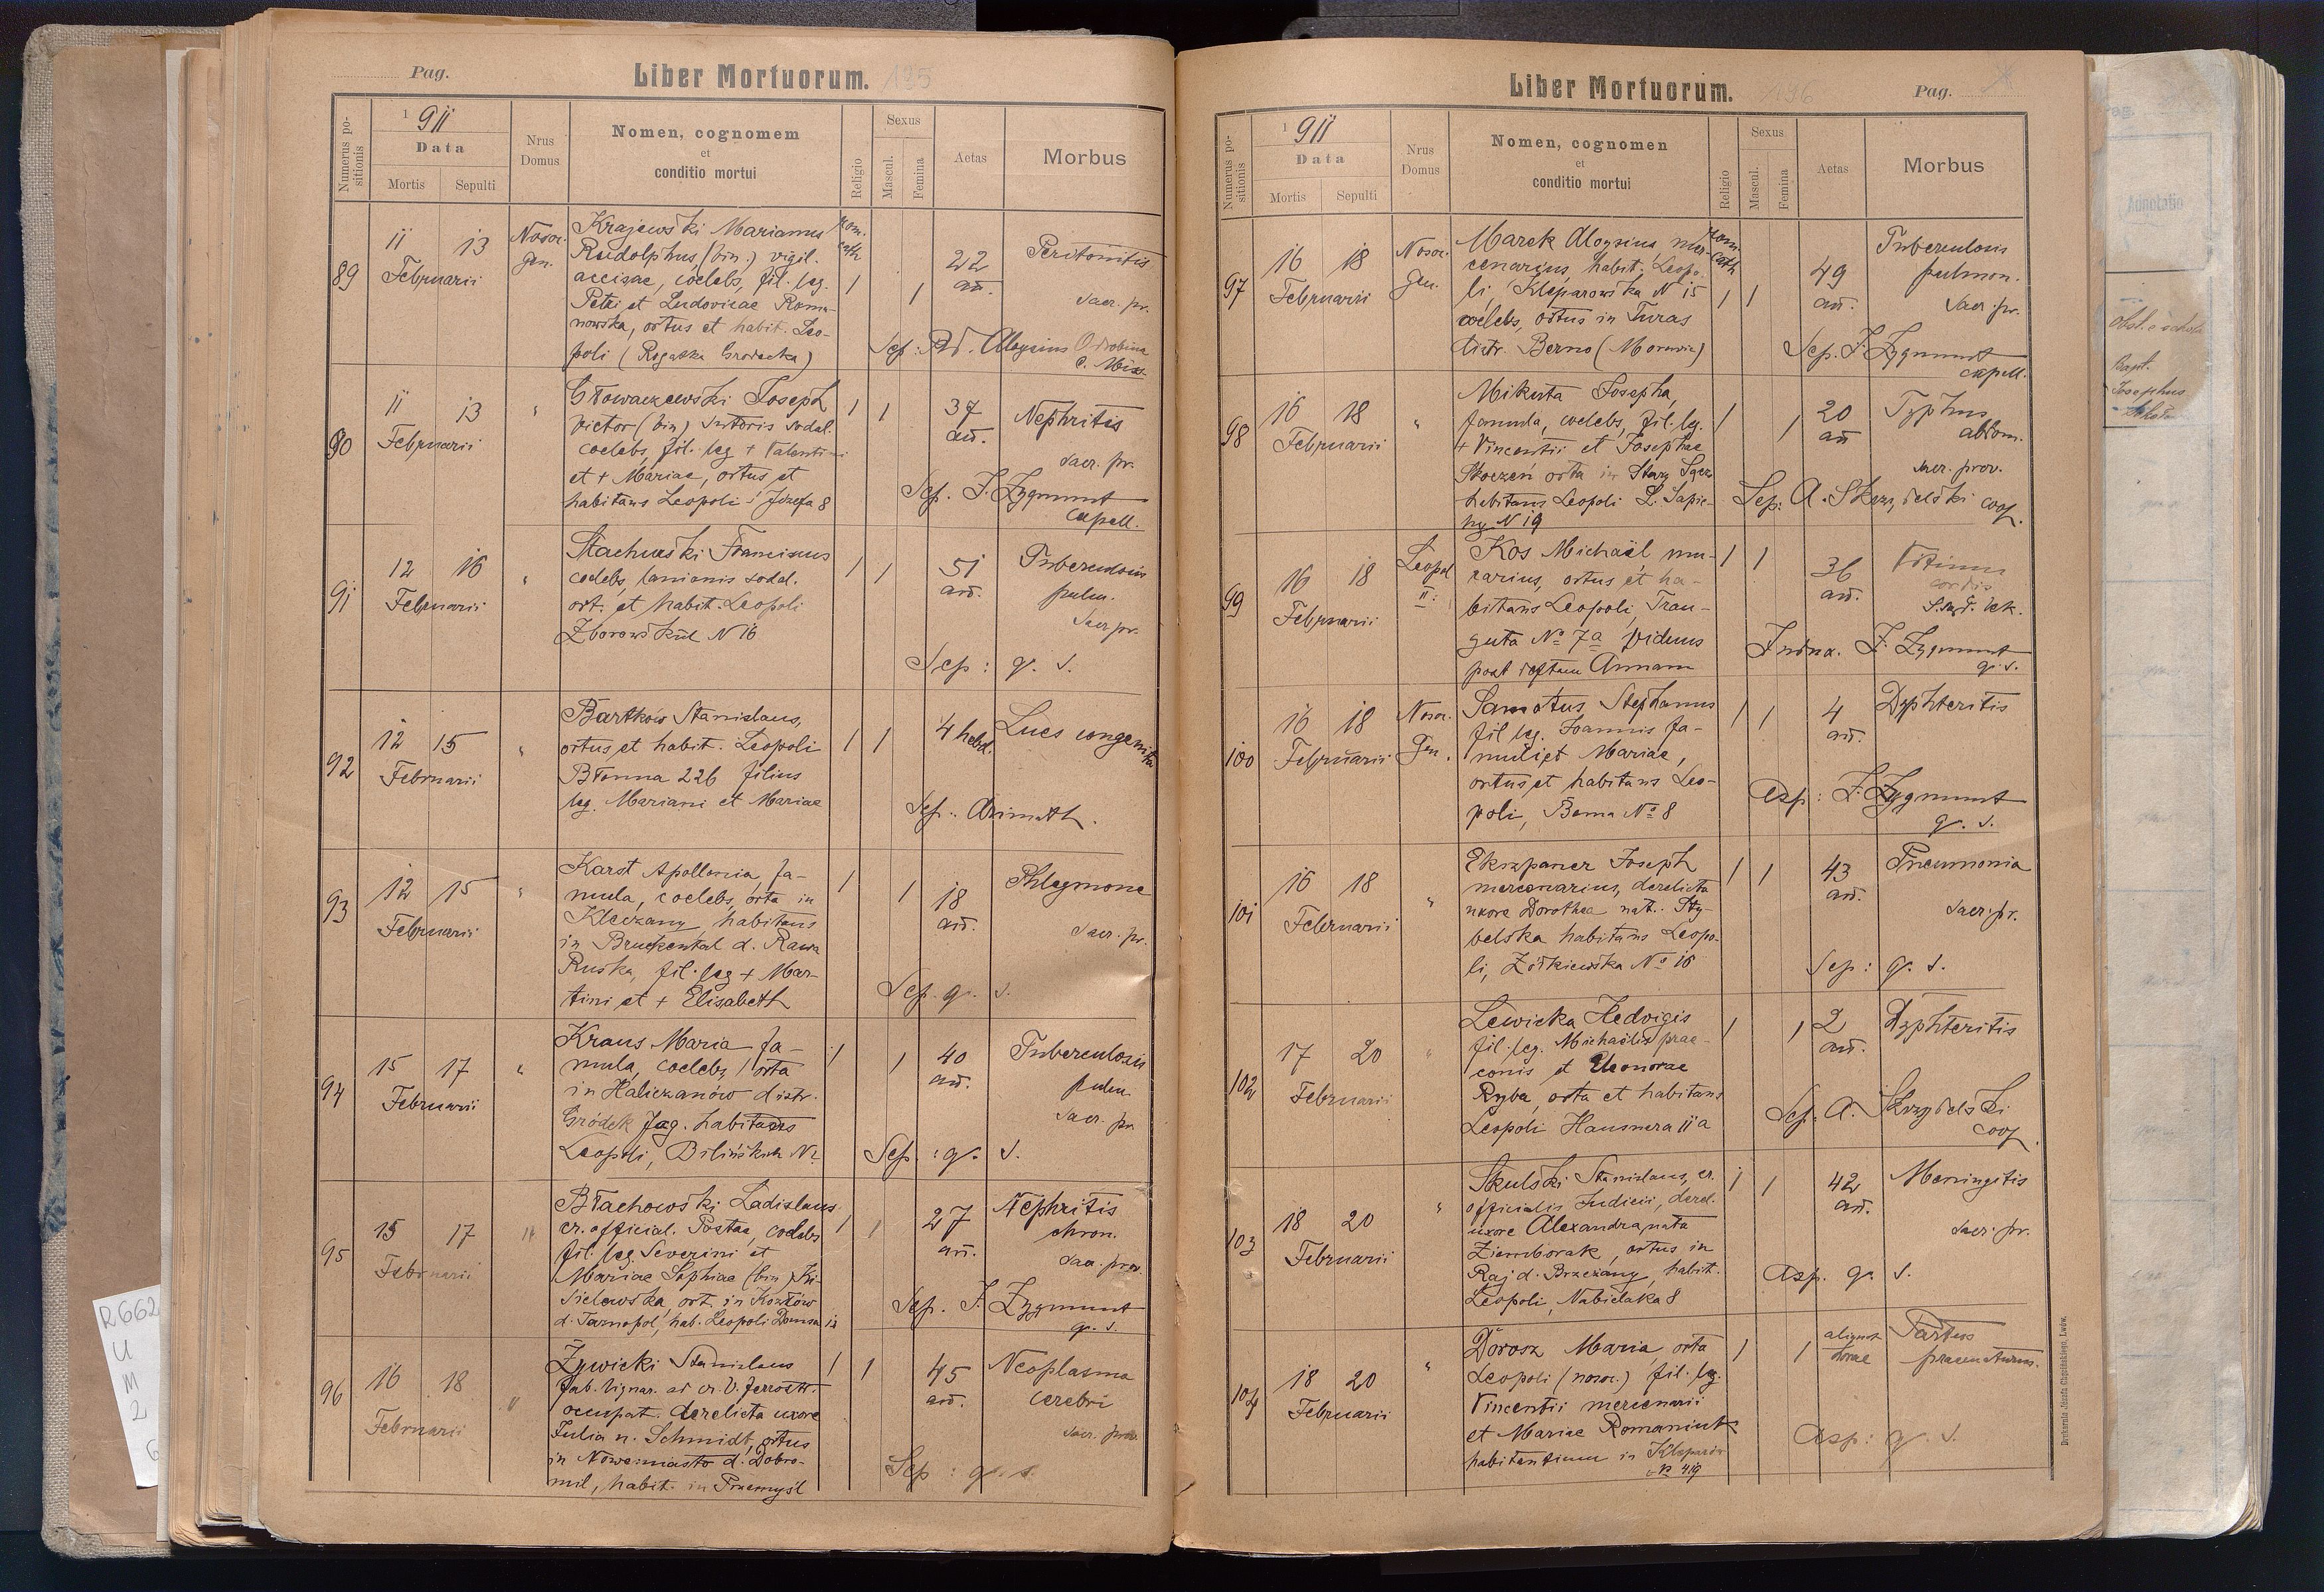 Pag.
Liber Mortuorum. 195
Numerus positionis
1911
Data
Mortis
Sepulti
Nrus Domus
Nomen, cognomem
et
conditio mortui
Religio
Sexus
Mascul.
Femina
Aetas
Morbus
89
11 13
Februarii
Nosoc.
gen.
Krajewski Marianus
Rudolphus, (bin.) vigil.
accisae, coelebs, fil. leg.
Petri et Ludovicae Roma-
nowska, ortus et habit. Leo-
poli (Rogatka Grodecka)
rom.
cath
1
1
22
an.
Peritonitis
sacr. pr.
Sep: Rd. Aloysius Odrobina
C. Miss
90
11 13
Februarii
"
Głowaczewski Joseph
Victor (bin) sutoris sodal.
coelebs, fil. leg + Valentini
et + Mariae, ortus et
habitans Leopoli ś Józefa 8
1 1
37
an.
Nephritis
sacr. pr.
Sep. J. Zygmunt
capell.
91
12 16
Februarii
"
Stachurski Franciscus
coelebs, lanionis sodal.
ort. et habit. Leopoli
Zborowskich N 16
1 1
51
an.
Tuberculosis
pulm.
Sacr pr.
Sep: q. s.
92
12 15
Februarii
"
Bartków Stanislaus,
ortus et habit. Leopoli
Błonna 226 filius
leg. Mariani et Mariae
1 1
4 hebd.
Lues congenita
Sep. Arimath.
93
12 15
Februarii
"
Karst Apollonia, fa-
mula, coelebs, orta in
Kleczany, habitans
in Bruckental d. Rawa
Ruska, fil. leg + Mar-
tini et + Elisabeth
1 1
18
an.
Phlegmone
sacr. pr.
Sep. q. s.
94
15 17
Februarii
"
Kraus Maria fa-
mula, coelebs, orta
in Haliczanów distr.
Gródek Jag. habitans
Leopoli, Bilińskich N2
1 1
40
an.
Tuberculosis
pulm.
Sacr. pr.
Sep: q. s.
95
15 17
Februarii
"
Błachowski Ladislaus
cr. official. Postae, coelebs
fil. leg Severini et
Mariae Sophiae (bin) Ki-
sielewska, ort. in Kozłów
d. Tarnopol, hab. Leopoli
1 1
27
an.
Nephritis
chron.
Sacr. prov.
Sep. J. Zygmunt
q. s.
96
16 18
Februarii
"
Żywicki Stanislaus
fab. lignar. ad cr. V. ferrostr.
occupat. derelicta uxore
Julia n. Schmidt, ortus
in Nowemiasto d. Dobro-
mil, habit. in Przemyśl
1 1
45
an.
Neoplasma
cerebri
sacr. prov.
Sep: q. s.
Liber Mortuorum. 196
Pag.
Numerus positionis
1911
Data
Mortis
Sepulti
Nrus Domus
Nomen, cognomen
et
conditio mortui
Religio
Sexus
Mascul.
Femina
Aetas
Morbus
97
16 18
Februarii
Nosoc.
Gen.
Marek Aloysius, mer-
cenarius, habit. Leopo-
li, Kleparowska N 15
coelebs, ortus in Turas
distr. Berno (Moravia)
rom.
cath
1 1
49
an.
Tuberculosis
pulmon.
Sacr. pr.
Sep. J. Zygmunt
capell.
98
16 18
Februarii
"
Mikuta Josepha,
famula, coelebs, fil. leg.
+ Vincentii et Josephae
Skoczeń orta in Stary
habitans Leopoli L. Sapie-
hy N 19
1 1
20
an
Typhus
abdom.
sacr. prov.
Sep: A. Skrzydelski coop.
99
16 18
Februarii
Leopol
II.
Kos Michaël mu-
rarius, ortus et ha-
bitans Leopoli, Trau-
guta No 7a viduus
post defctam Annam
1 1
36
an.
Vitium
cordis
J. Zygmunt
q. s.
100
16 18
Februarii
Nosoc.
Gen.
Samotus Stephanus
fil leg. Joannis fa-
muli et Mariae,
ortus et habitans Leo-
poli, Bema No 8
1 1
4
an.
Dyphteritis
Asp: J. Zygmunt
q. s.
101
16 18
Februarii
"
Ekszpaner Joseph
mercenarius, derelicta
uxore Dorothea nat. Sty-
belska habitans Leopo-
li, Żółkiewska No 16
1 1
43
an.
Pneumonia
sacr. pr.
Sep: q. s.
102
17 20
Februarii
"
Lewicka Hedvigis
fil. leg. Michaëlis prae-
conis et Eleonorae
Ryba, orta et habitans
Leopoli Hausnera 11a
1 1
2
an.
Dyphteritis
Sep. A. Skrzydelski
coop.
103
18 20
Februarii
"
Skulski Stanislaus, cr.
officialis Judicii, derel.
uxore Alexandra, nata
Ziemborak, ortus in
Raj d. Brzeżany, habit.
Leopoli, Nabielaka 8
1 1
42
an.
Meningitis
sacr. pr.
Asp. q. s.
104
18 20
Februarii
"
Dorosz Maria orta
Leopoli (nosoc.) fil. leg.
Vincentii mercenarii
et Mariae Romaniuk
habitantium in Kleparów
N 419
1 1
aliquot
horae
Partus
praematurus.
Asp: q. s.
Drukarnia Józefa Chęcińskiego, Lwów.
R662
U
M
2
6
Adnotatio
Bapt.
Josephus